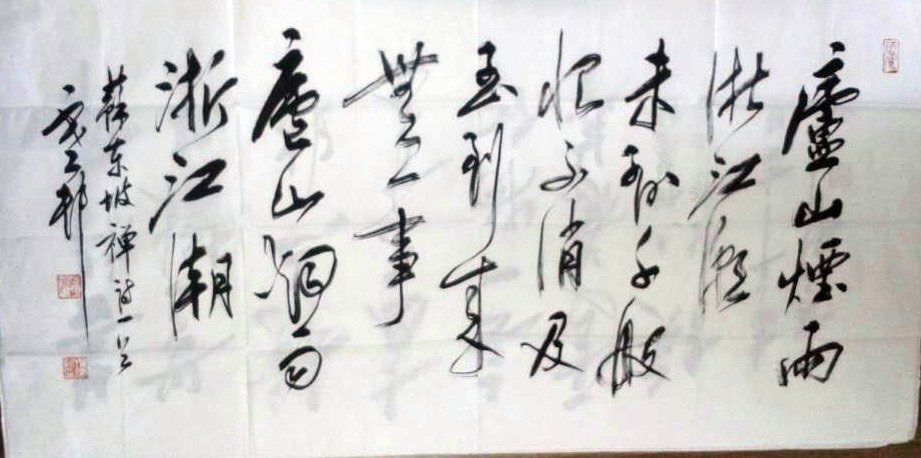 廬山煙雨
浙江潮
未到千般
恨不消及
至到來
無一事
廬山煙雨
浙江潮
蘇東坡禪詩一首